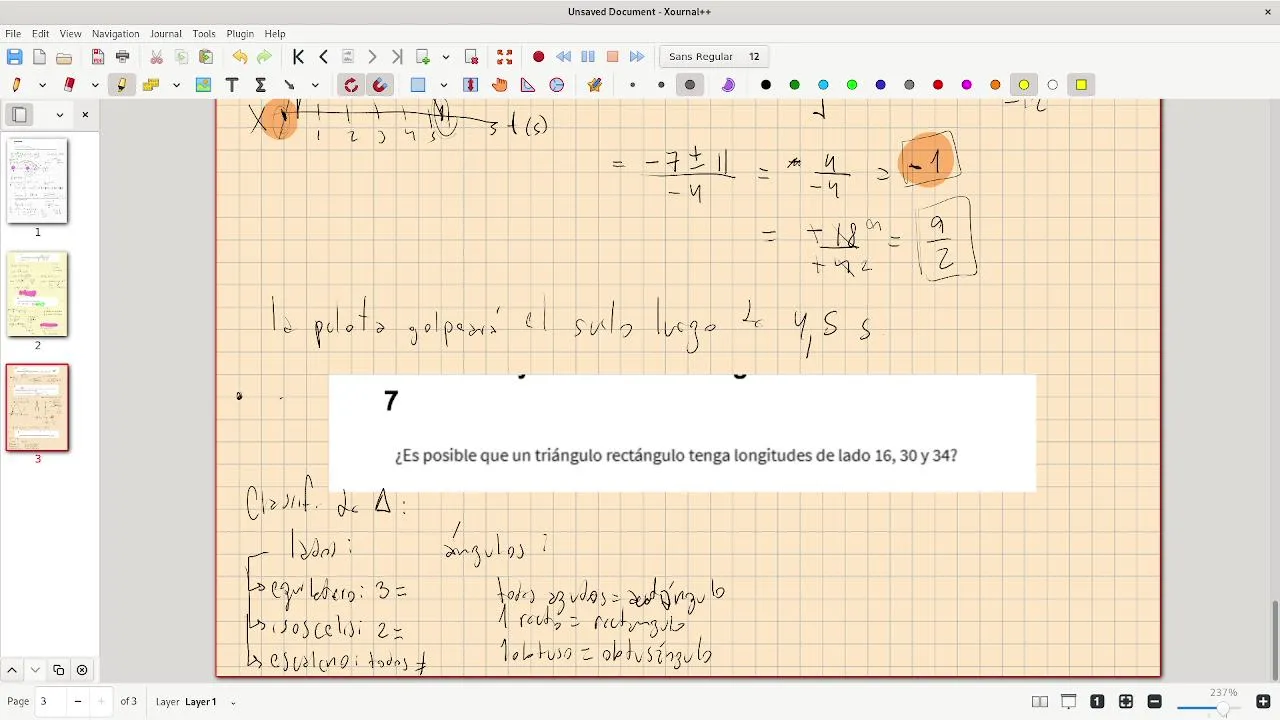 Unsaved Document - Xournal++
File Edit View Navigation Journal Tools Plugin Help
Sans Regular 12
1
2
3
1 2 3 4 5 t (s)
-12
= -7 ± 11 / -4 = 4 / -4 = -1
= +18 / +4 = 9 / 2
la pelota golpeará el suelo luego de 4,5 s
7
¿Es posible que un triángulo rectángulo tenga longitudes de lado 16, 30 y 34?
Clasif. de Δ:
lados: ángulos:
equilátero: 3 =
isósceles: 2 =
escaleno: todos ≠
todos agudos =
1 recto = rectángulo
1 obtuso = obtusángulo
Page 3 of 3 Layer Layer 1
237%